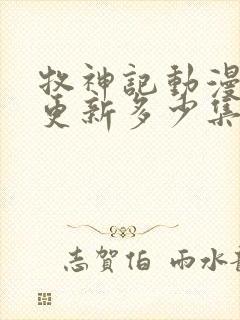 牧神記動漫
更新多少集
志賀伯 雨水